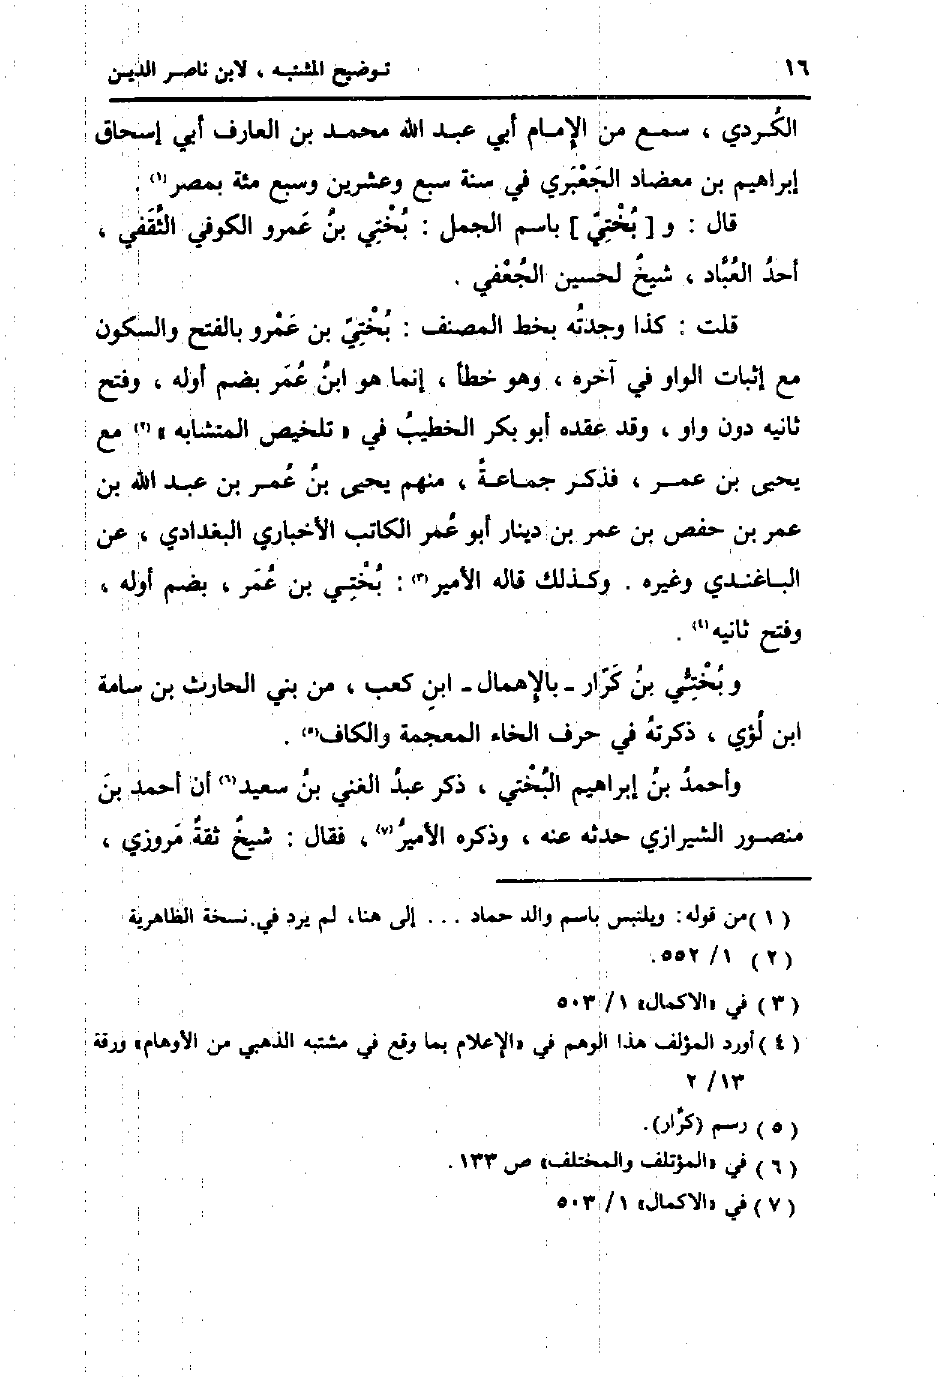 ١٦ توضيح المشتبه ، لابن ناصر الدين
الكُردي ، سمع من الإمام أبي عبد الله محمد بن العارف أبي إسحاق
إبراهيم بن معضاد الجَعْبَري في سنة سبع وعشرين وسبع مئة بمصر(١) .
قال : و [ بُخْتِيّ ] باسم الجمل : بُخْتِي بنُ عَمرو الكوفي الثَّقَفي ،
أحدُ العُبَّاد ، شيخٌ لحسين الجُعْفي .
قلت : كذا وجدتُه بخط المصنف : بُخْتِيّ بن عَمْرو بالفتح والسكون
مع إثبات الواو في آخره ، وهو خطأ ، إنما هو ابنُ عُمَر بضم أوله ، وفتح
ثانيه دون واو ، وقد عقده أبو بكر الخطيبُ في « تلخيص المتشابه » (٢) مع
يحيى بن عمر ، فذكر جماعةً ، منهم يحيى بنُ عُمر بن عبد الله بن
عمر بن حفص بن عمر بن دينار أبو عُمر الكاتب الأخباري البغدادي ، عن
الباغندي وغيره . وكذلك قاله الأمير(٣) : بُخْتِي بن عُمَر ، بضم أوله ،
وفتح ثانيه(٤) .
وبُخْتِيُّ بنُ كَرَّار ـ بالإهمال ـ ابنِ كعب ، من بني الحارث بن سامة
ابن لُؤي ، ذكرتهُ في حرف الخاء المعجمة والكاف(٥) .
وأحمدُ بنُ إبراهيم البُخْتي ، ذكر عبدُ الغني بنُ سعيد(٦) أن أحمد بنَ
منصور الشيرازي حدثه عنه ، وذكره الأميرُ(٧) ، فقال : شيخٌ ثقةٌ مَروزي ،
( ١ ) من قوله: ويلتبس باسم والد حماد ... إلى هنا، لم يرد في نسخة الظاهرية
( ٢ ) ١/ ٥٥٢.
( ٣ ) في «الاكمال» ١/ ٥٠٣
( ٤ ) أورد المؤلف هذا الوهم في «الإعلام بما وقع في مشتبه الذهبي من الأوهام» ورقة
١٣/ ٢
( ٥ ) رسم (كرَّار).
( ٦ ) في «المؤتلف والمختلف» ص ١٣٣.
( ٧ ) في «الاكمال» ١/ ٥٠٣